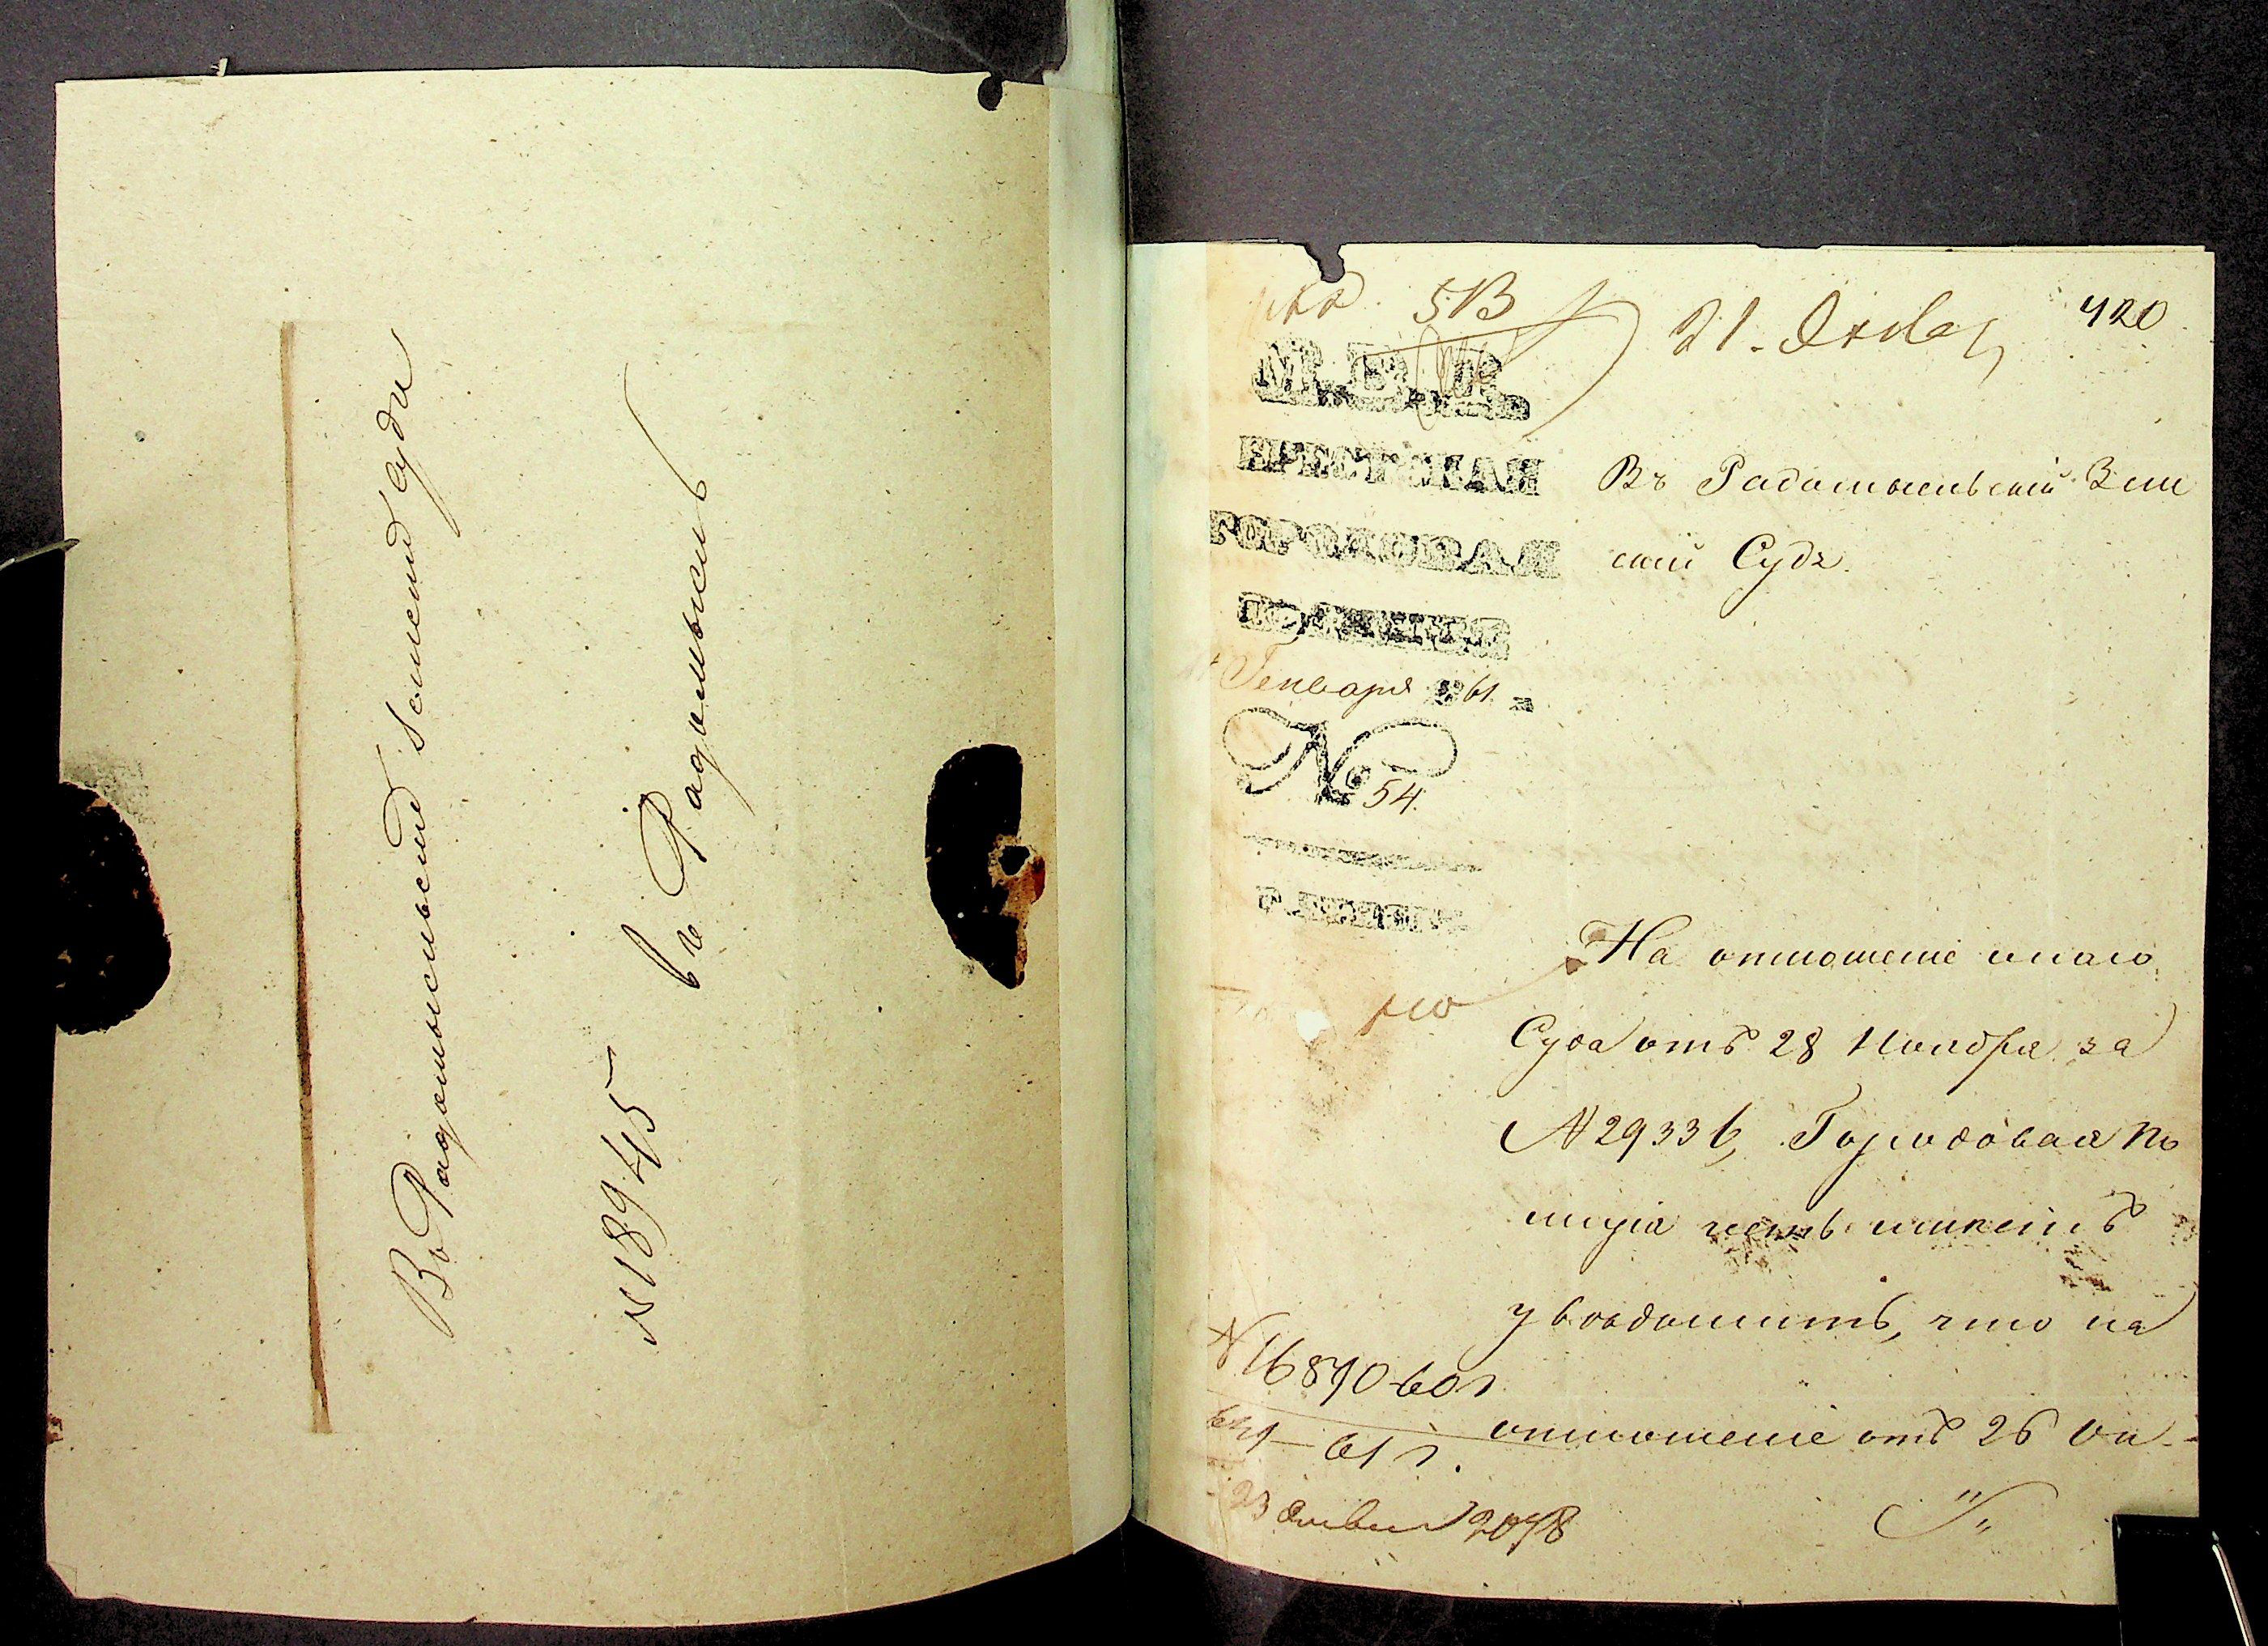 Въ Радомысльскій Земскій Судъ
въ Радомысль
№ 18945
420
513
21. Янва
М. В. Д.
БРЕСТСКАЯ
ГОРОДОВАЯ
ПОЛИЦІЯ
Генваря 1861
№ 54.
Г. БРЕСТЪ
Въ Радомысльскій Зем
скій Судъ.
На отношеніе онаго
Суда отъ 28 Ноября за
N 29336, Городовая По
лиція честь имѣетъ
увѣдомить, что на
отношеніе отъ 26 Ок-
N 16870 60 г
61 г.
23 Января 2078